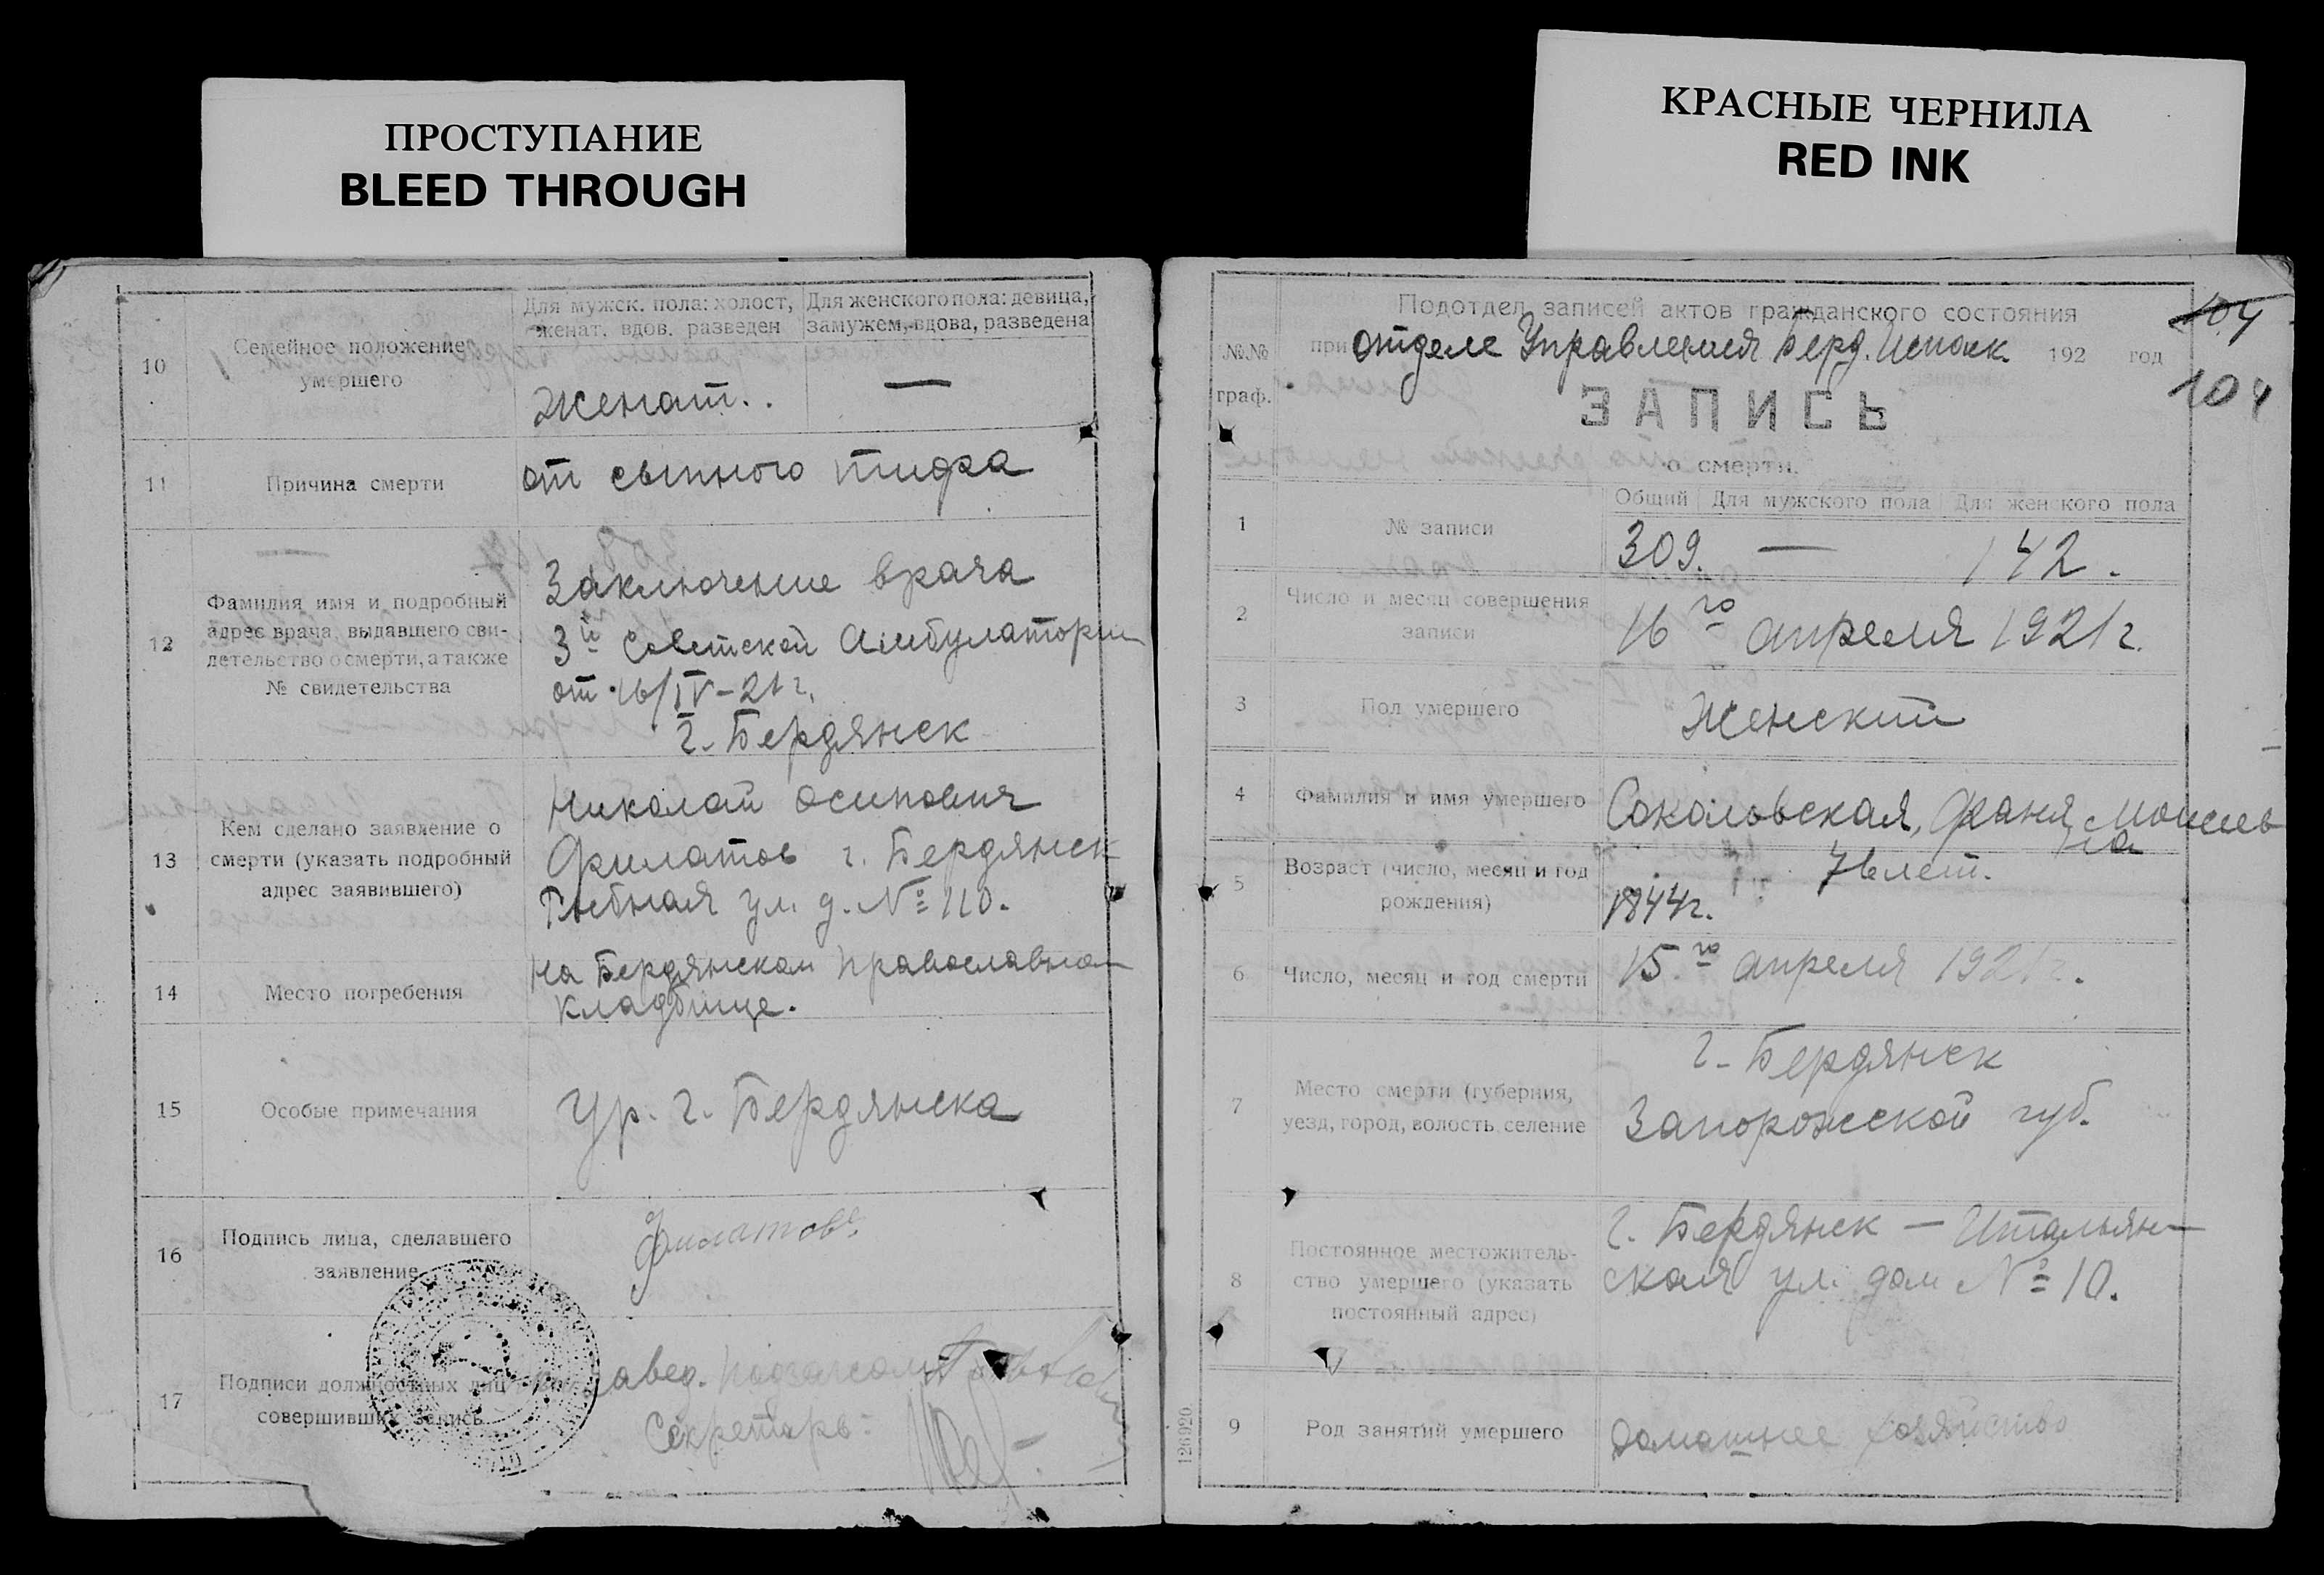 ПРОСТУПАНИЕ
BLEED THROUGH
КРАСНЫЕ ЧЕРНИЛА
RED INK
10
Семейное положение
умершего
Для мужск. пола: холост,
женат. вдов. разведен
Для женского пола: девица,
замужем, вдова, разведена
Женат.
—
11
Причина смерти
от сыпного тифа
12
Фамилия имя и подробный
адрес врача, выдавшего сви-
детельство о смерти, а также
№ свидетельства
Заключение врача
3й Советской Амбулатории
от 16/IV-21 г.
г. Бердянск
13
Кем сделано заявление о
смерти (указать подробный
адрес заявившего)
Николай Осипович
Филатов г. Бердянск
ул. д. № 110.
14
Место погребения
на Бердянском православном
кладбище.
15
Особые примечания
Ур. г. Бердянска
16
Подпись лица, сделавшего
заявление
Филатовъ
17
Подписи должностных лиц
совершивших запись
Завед.
Секретарь
104
104
№№
граф.
Подотдел записей актов гражданского состояния
при отделе Управления Берд. Исполк. 192 год
ЗАПИСЬ
о смерти.
1
№ записи
Общий Для мужского пола Для женского пола
309. — 142.
2
Число и месяц совершения
записи
16го апреля 1921 г.
3
Пол умершего
Женский
4
Фамилия и имя умершего
Соколовская, Фаня Моисеев
на
5
Возраст (число, месяц и год
рождения)
76 лет.
1844 г.
6
Число, месяц и год смерти
15.го апреля 1921 г.
7
Место смерти (губерния,
уезд, город, волость, селение
г. Бердянск
Запорожской губ.
8
Постоянное местожитель-
ство умершего (указать
постоянный адрес)
г. Бердянск — Итальян-
ская ул. дом № 10.
9
Род занятий умершего
домашнее хозяйство
126920